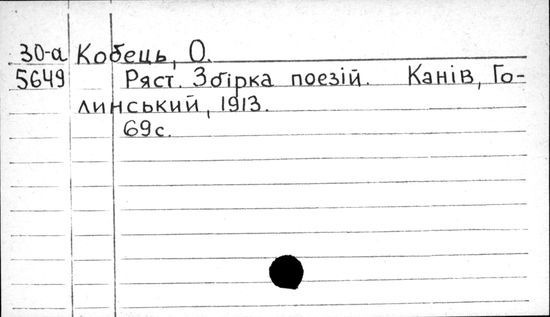 30-а Кобець, О.
5649 Ряст. Збірка поезій. Канів, Го-
линський, 1913.
69с.